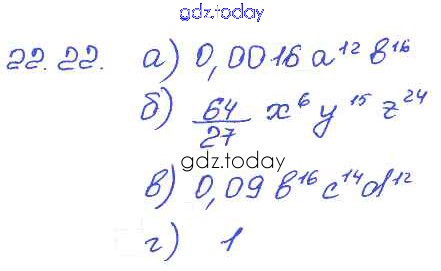 gdz.today
22.22. а) 0,0016 a¹² b¹⁶
б) 64/27 x⁶ y¹⁵ z²⁴
gdz.today
в) 0,09 b¹⁶ c¹⁴ d¹²
г) 1